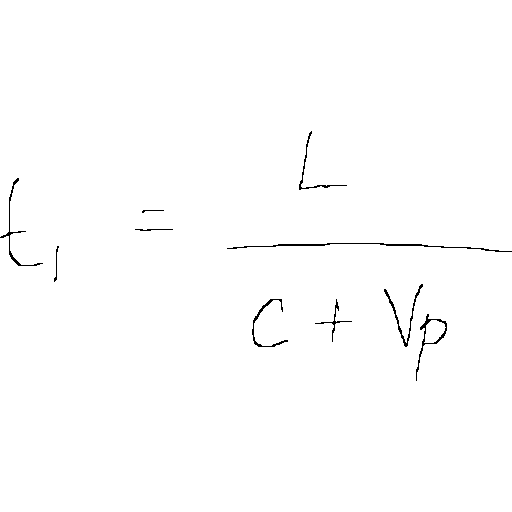 t_1 = \frac{L}{C + V_p}